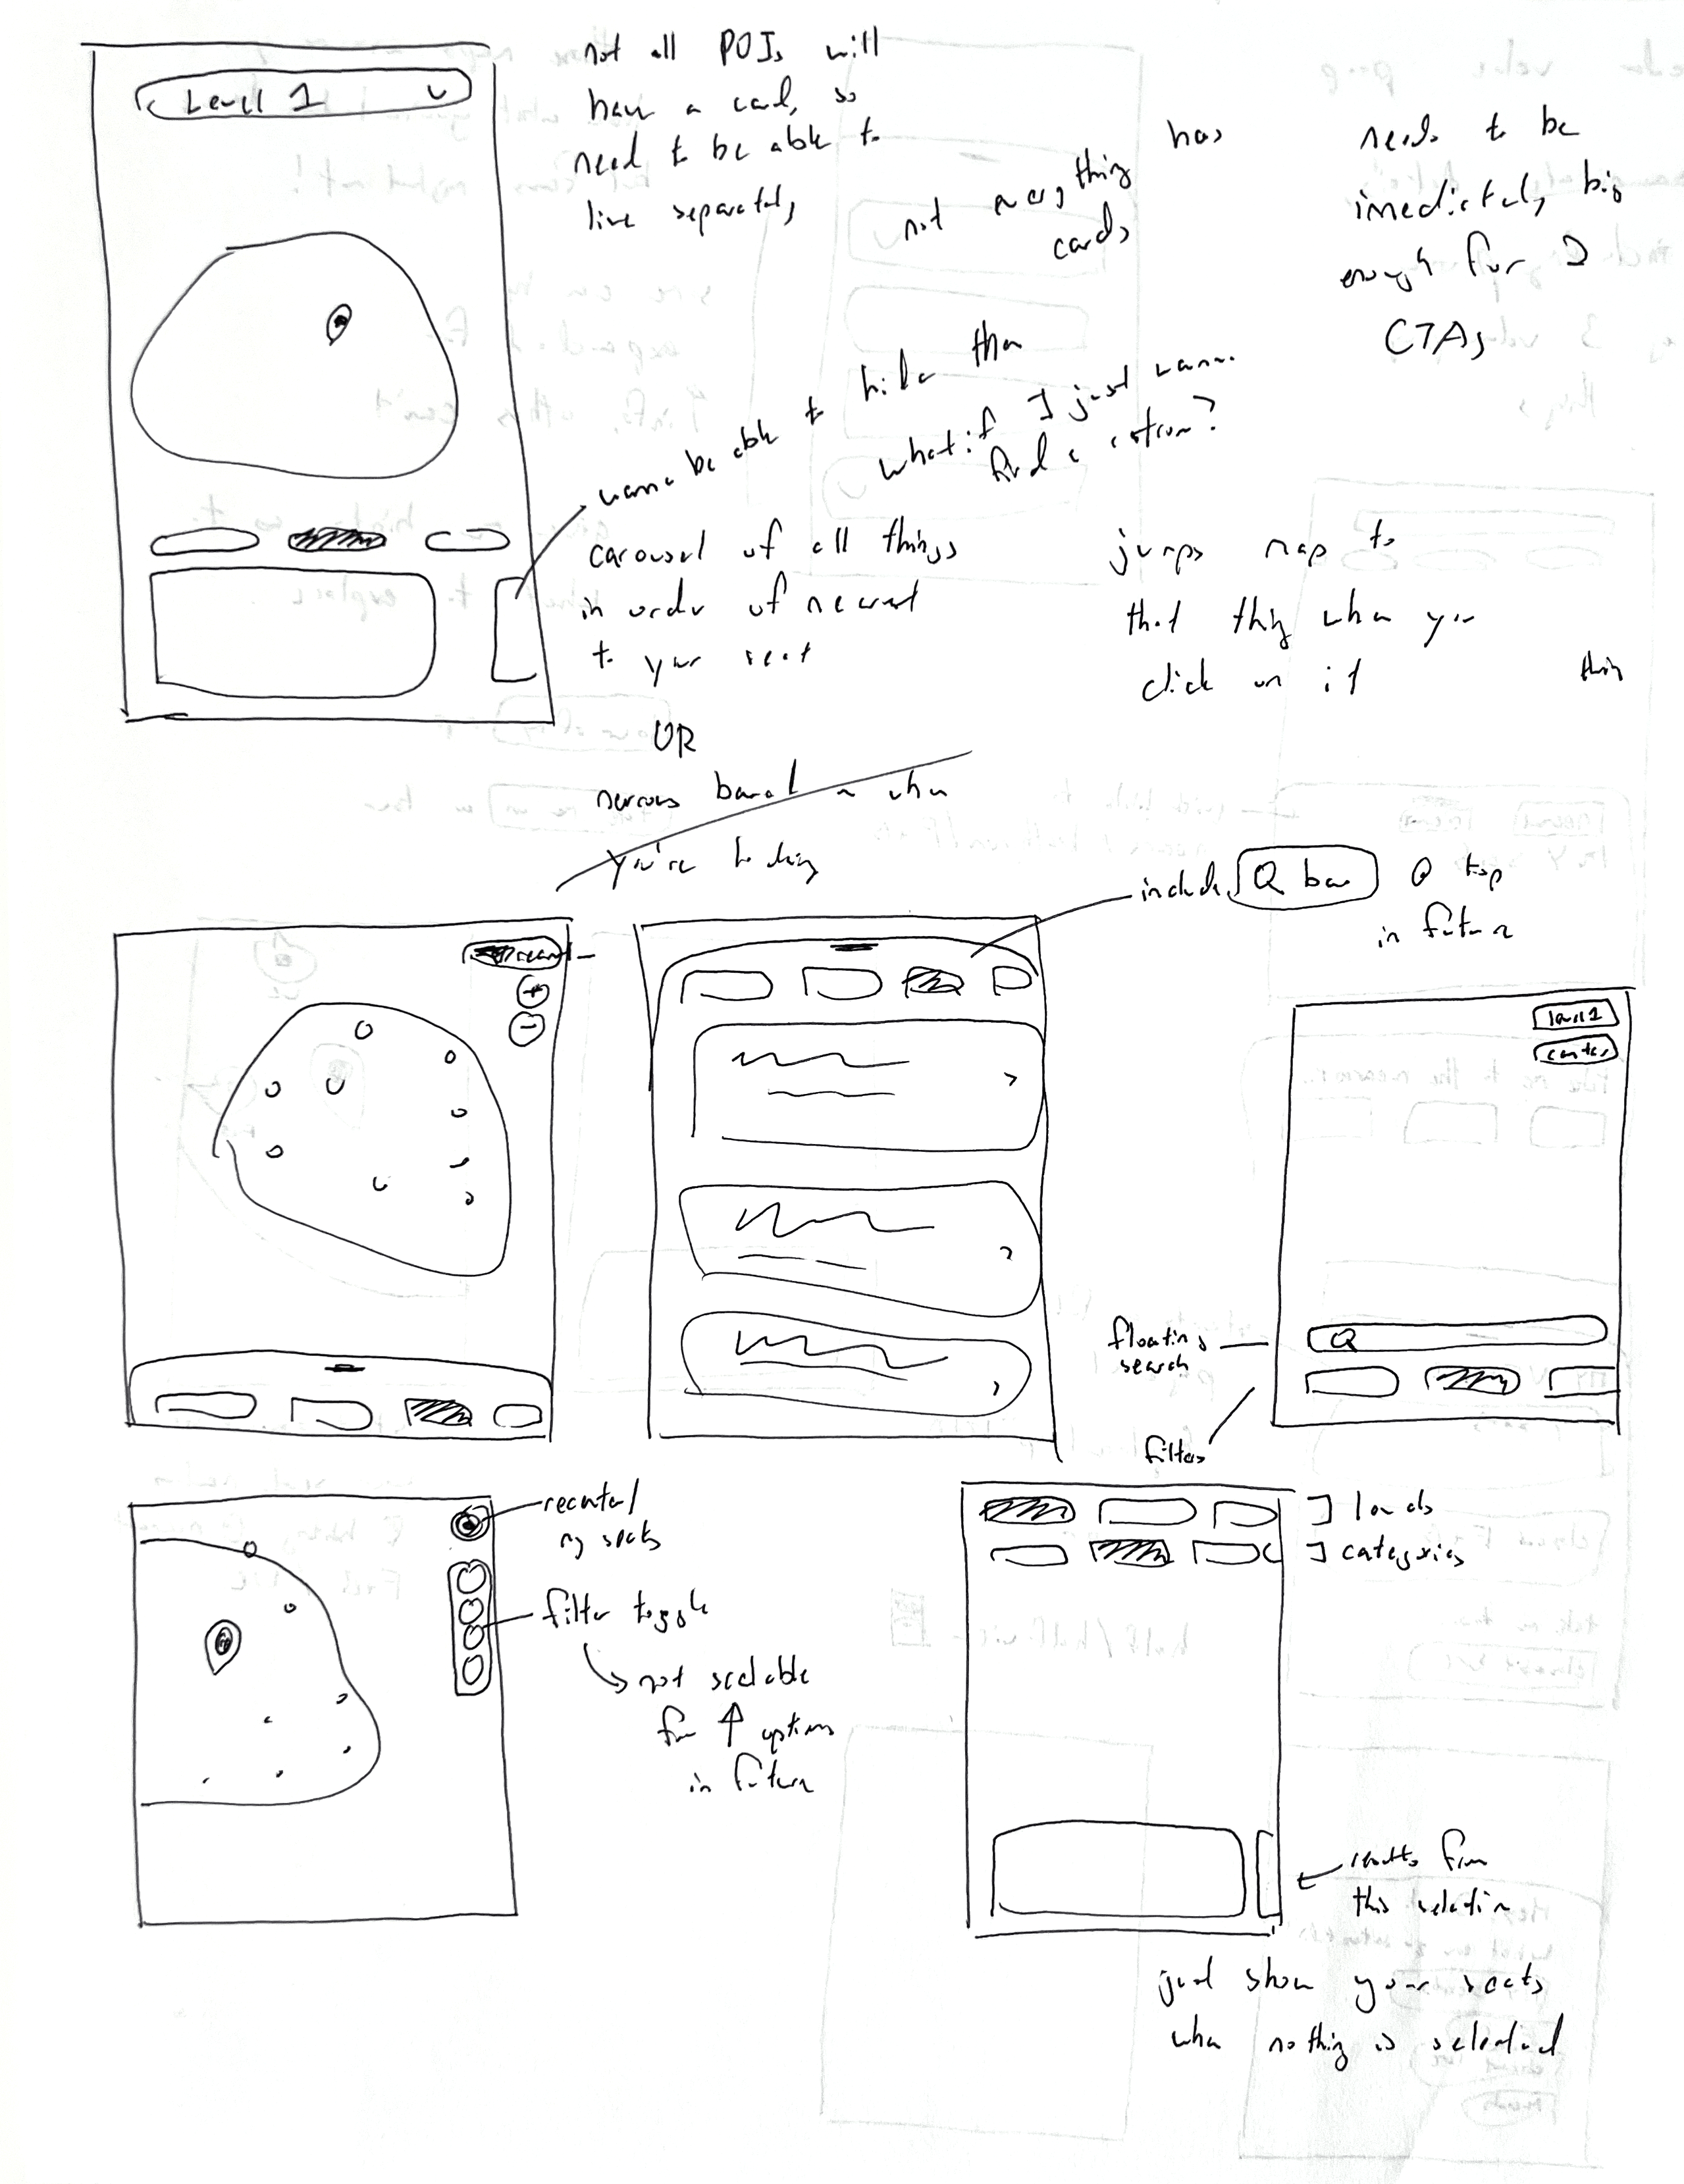 Level 1
not all POIs will
have a card, so
need to be able to
live separately
not everything has
cards
needs to be
imedictely big
enough for 2
CTAs
wanna be able to hide them
what if I just wanna
find a restroom?
carousel of all things
in order of nearest
to your seat
jumps map to
that thing when you
click on it
thing
OR
narrows based on when
you're looking
include Q bar @ top
in future
recenter
+
-
level 1
center
floating
search
Q
filters
recenter/
my seats
filter toggle
not scalable
for ↑ options
in future
levels
categories
results from
this selection
just show your seats
when nothing is selected